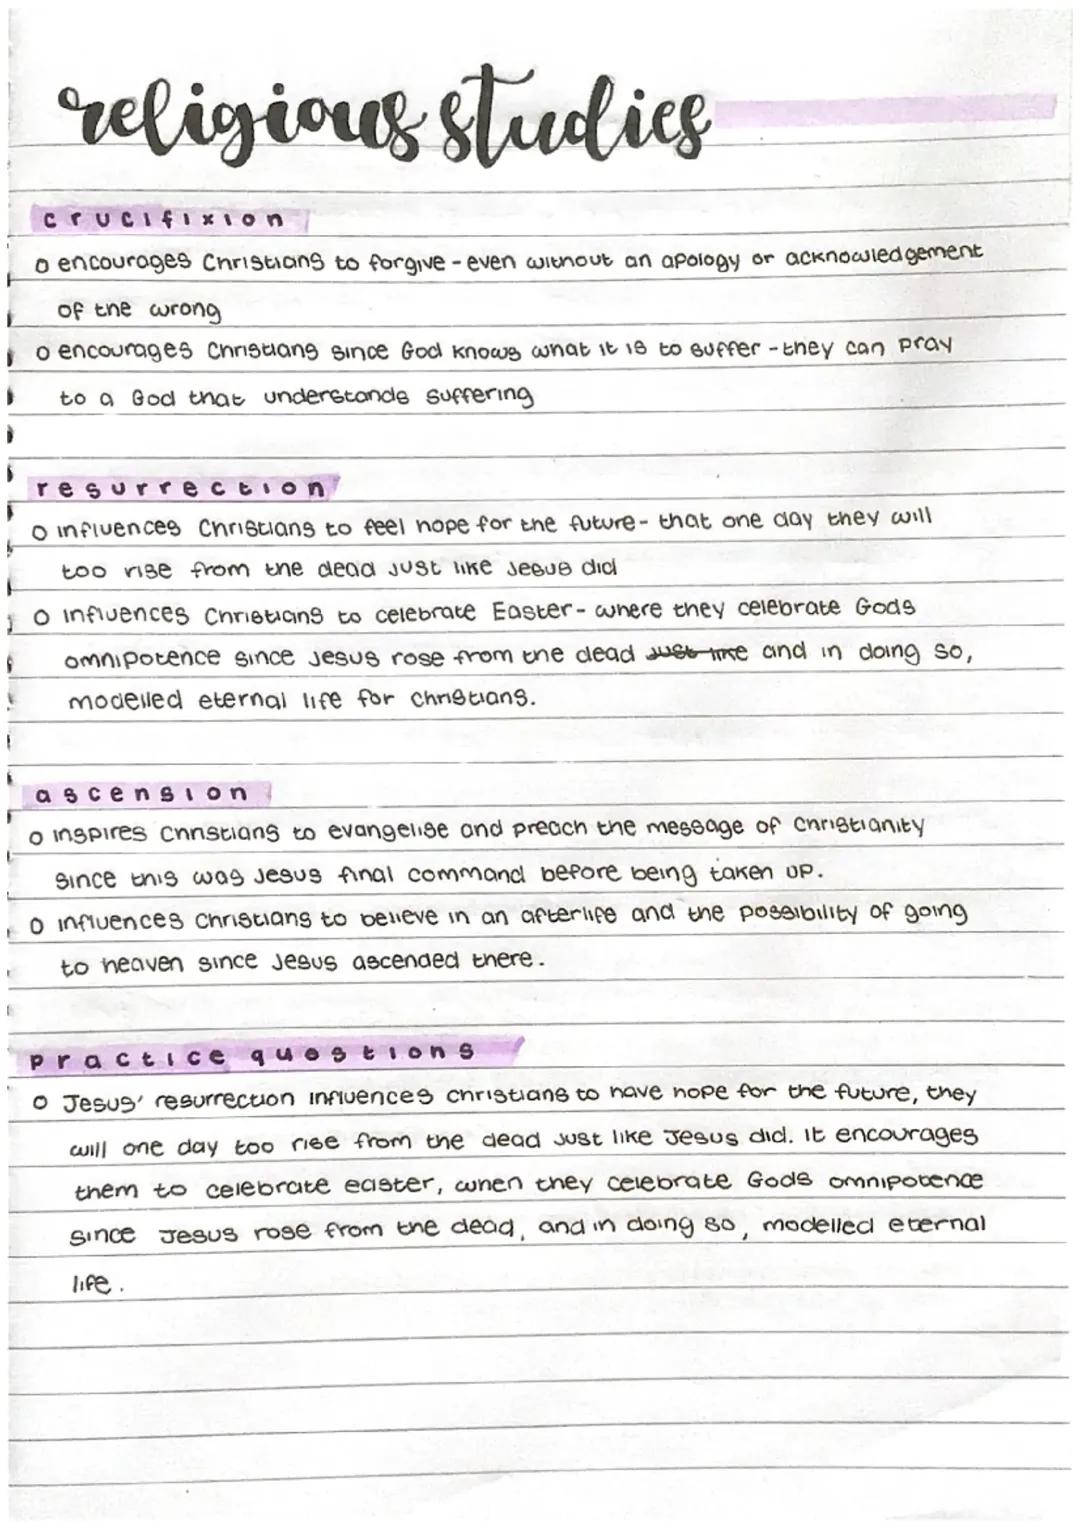 religious studies
crucifixion
o encourages Christians to forgive - even without an apology or acknowledgement
of the wrong
o encourages Christians since God knows what it is to suffer - they can pray
to a God that understands suffering
resurrection
o influences Christians to feel hope for the future - that one day they will
too rise from the dead just like Jesus did
o influences Christians to celebrate Easter - where they celebrate Gods
omnipotence since Jesus rose from the dead just like and in doing so,
modelled eternal life for christians.
ascension
o inspires Christians to evangelise and preach the message of Christianity
since this was Jesus final command before being taken up.
o influences christians to believe in an afterlife and the possibility of going
to heaven since Jesus ascended there.
practice questions
o Jesus' resurrection influences christians to have hope for the future, they
will one day too rise from the dead just like Jesus did. It encourages
them to celebrate easter, when they celebrate Gods omnipotence
since Jesus rose from the dead, and in doing so, modelled eternal
life.